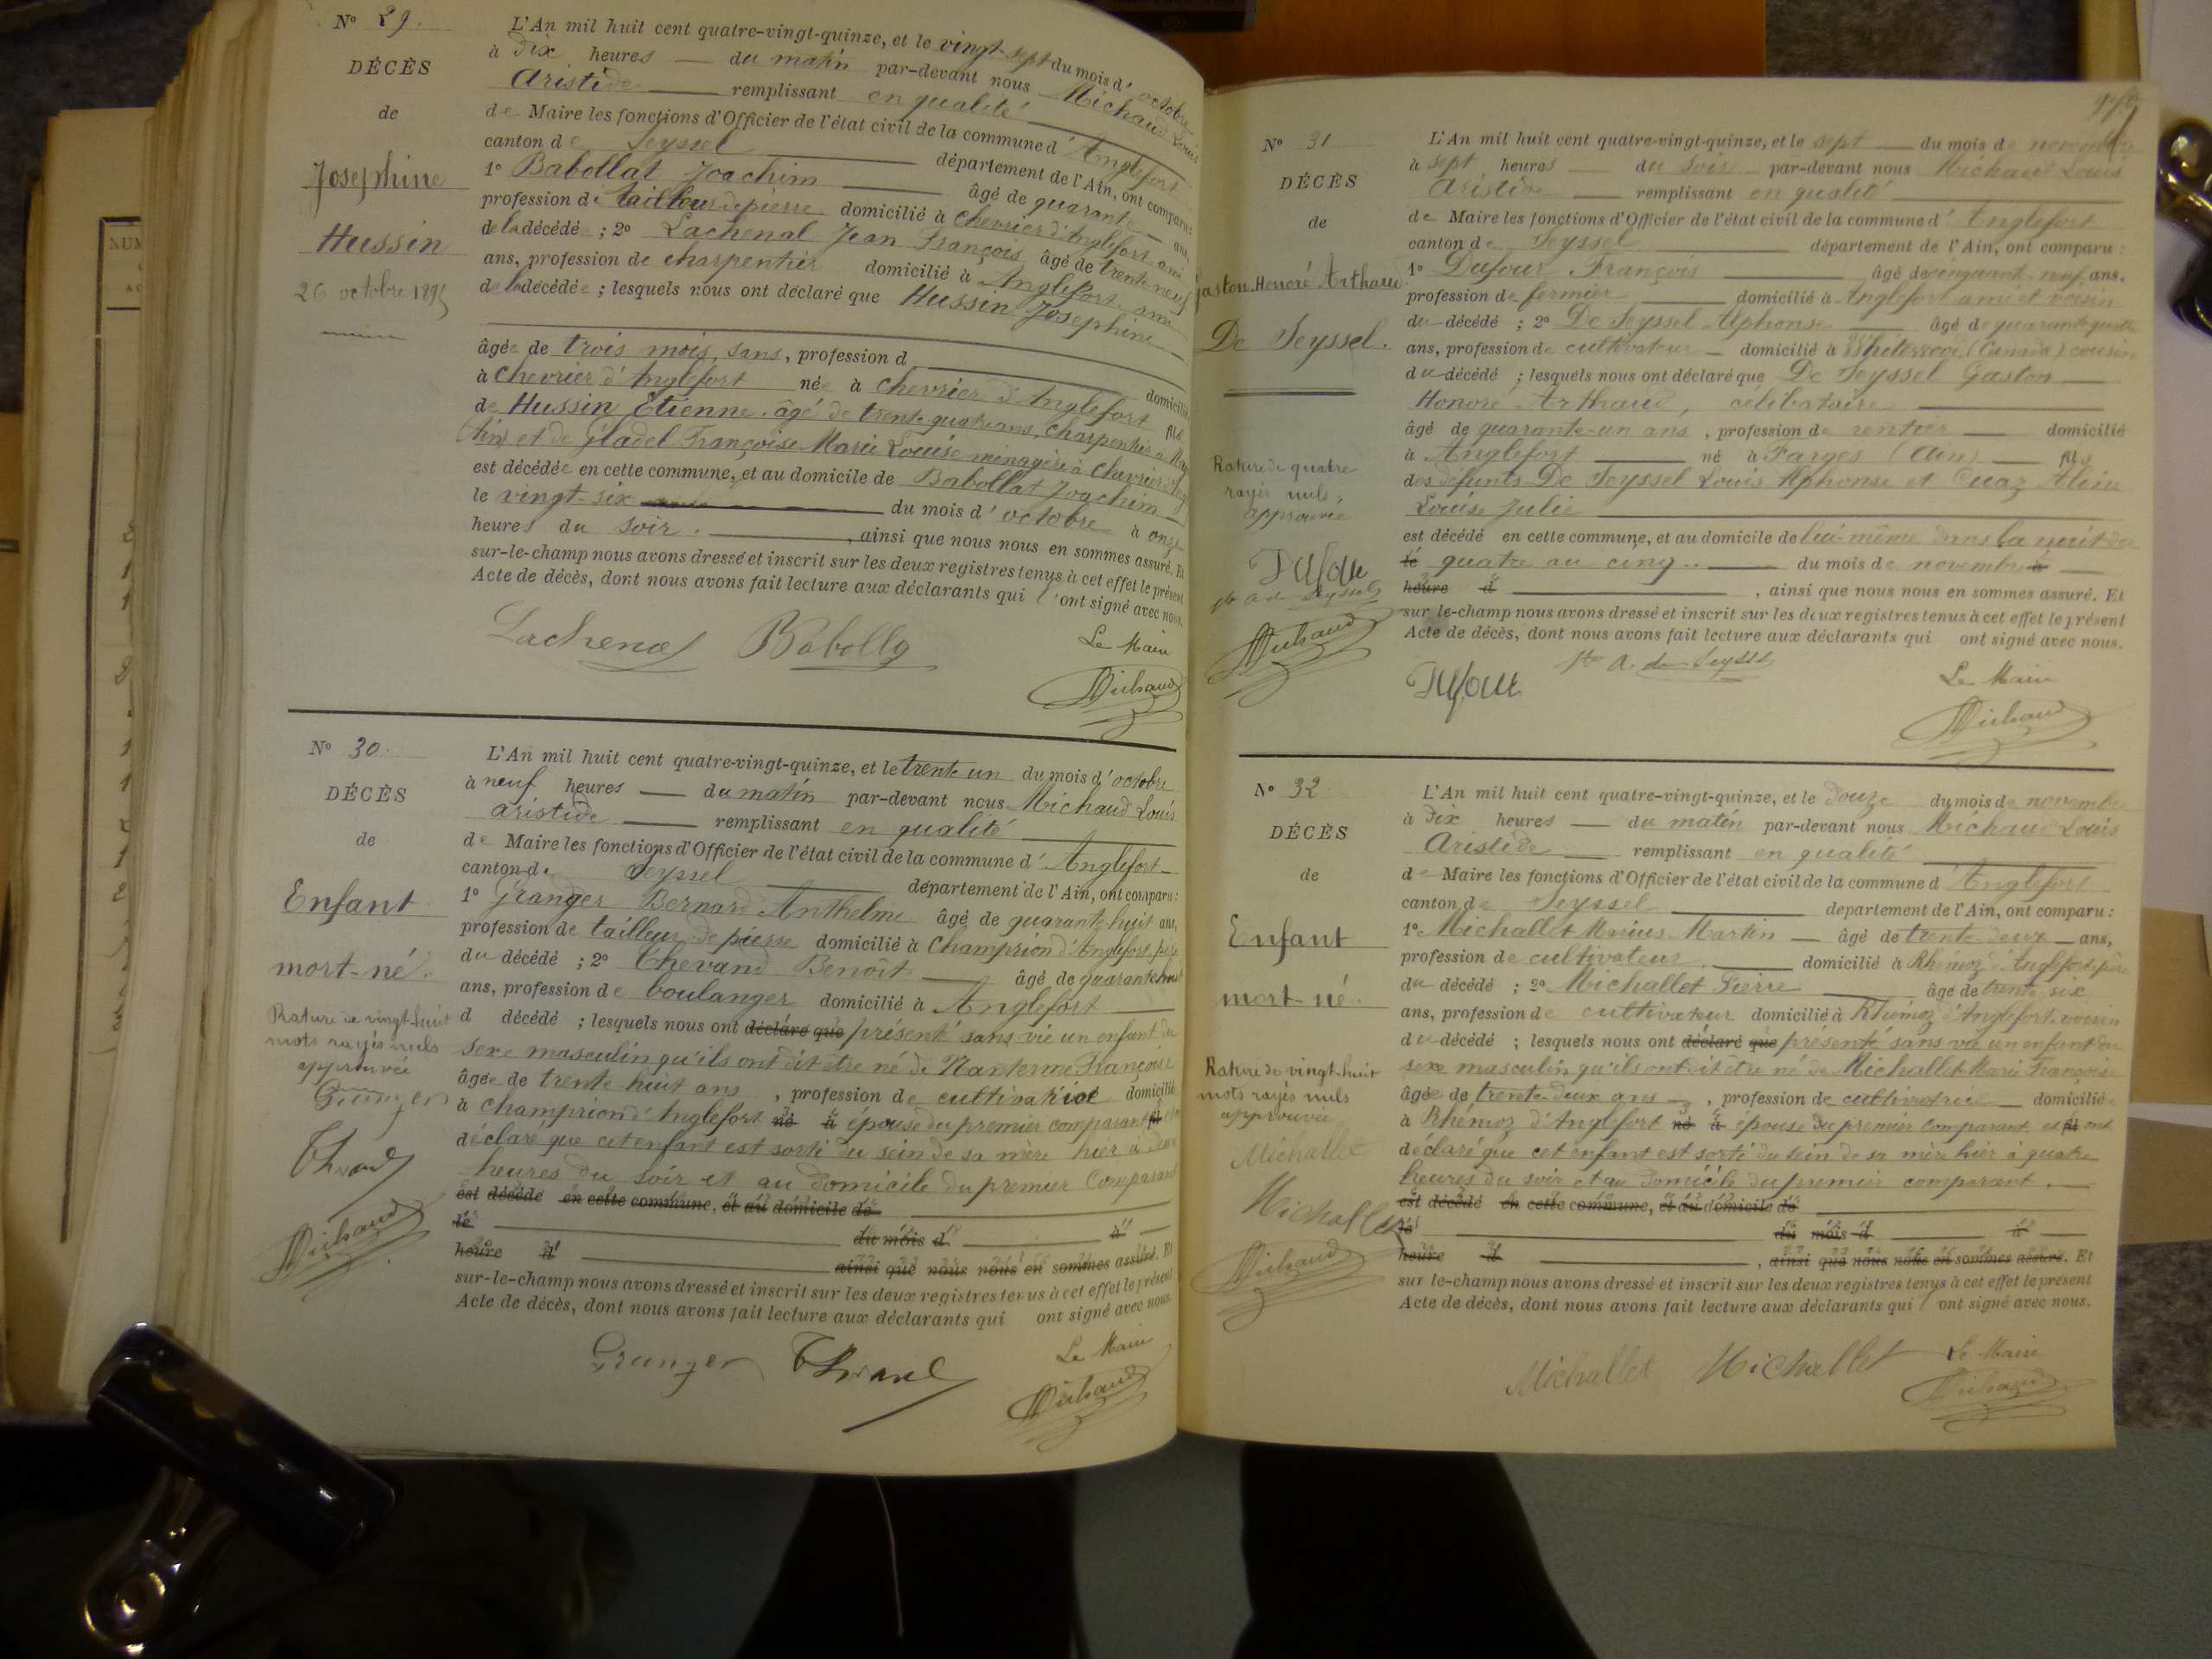 N° 29.
DÉCÈS
de
Josephine
Hussin
26 octobre 1895
L'An mil huit cent quatre-vingt-quinze, et le vingt-sept du mois d'octobre
à Dix heures du matin par-devant nous Michaud Louis
Aristide remplissant en qualité
de Maire les fonctions d'Officier de l'état civil de la commune d'Anglefort
canton de Seyssel département de l'Ain, ont comparu:
1° Babollat Joachim âgé de quarante ans,
profession de tailleur de pierre domicilié à Chevrier d'Anglefort ami
de la décédée ; 2° Lachenal Jean François âgé de trente-neuf
ans, profession de charpentier domicilié à Anglefort ami
de la décédée ; lesquels nous ont déclaré que Hussin Josephine
âgée de trois mois, sans, profession d domicilié
à Chevrier d'Anglefort née à Chevrier d'Anglefort fils
de Hussin Étienne, âgé de trente quatre ans, charpentier à
et de Gladel Françoise Marie Louise ménagère à Chevrier
est décédée en cette commune, et au domicile de Babollat Joachim
le vingt-six du mois d'octobre à onze
heures du soir. , ainsi que nous nous en sommes assuré. Et
sur-le-champ nous avons dressé et inscrit sur les deux registres tenus à cet effet le présent
Acte de décès, dont nous avons fait lecture aux déclarants qui l'ont signé avec nous.
Lachenal Babolly
Le Maire
Michaud
N° 30.
DÉCÈS
de
Enfant
mort-né.
Rature de vingt-huit
mots rayés nuls
approuvée
Granger
Michaud
L'An mil huit cent quatre-vingt-quinze, et le trente un du mois d'octobre
à neuf heures du matin par-devant nous Michaud Louis
Aristide remplissant en qualité
de Maire les fonctions d'Officier de l'état civil de la commune d'Anglefort
canton de Seyssel département de l'Ain, ont comparu:
1° Granger Bernard Anthelme âgé de quarante-huit ans,
profession de tailleur de pierre domicilié à Champrion d'Anglefort, père
du décédé ; 2° Benoît âgé de quarante
ans, profession de boulanger domicilié à Anglefort
d décédé ; lesquels nous ont déclaré que présenté sans vie un enfant du
sexe masculin qu'ils ont dit être né de Nanterme Françoise
âgée de trente huit ans , profession de cultivatrice domicilié
à Champrion d'Anglefort né à épouse du premier comparant
déclaré que cet enfant est sorti du sein de sa mère hier à
heures du soir et au domicile du premier Comparant
est décédé en cette commune, et au domicile de
le du mois d à
heure d ainsi que nous nous en sommes assuré. Et
sur-le-champ nous avons dressé et inscrit sur les deux registres tenus à cet effet le présent
Acte de décès, dont nous avons fait lecture aux déclarants qui ont signé avec nous.
Granger
Le Maire
Michaud
N° 31
DÉCÈS
de
Gaston Honoré Arthaud
De Seyssel.
Rature de quatre
rayés nuls,
approuvée
Dufour
A de Seyssel
Michaud
L'An mil huit cent quatre-vingt-quinze, et le sept du mois de novembre
à sept heures du soir par-devant nous Michaud Louis
Aristide remplissant en qualité
de Maire les fonctions d'Officier de l'état civil de la commune d'Anglefort
canton de Seyssel département de l'Ain, ont comparu :
1° Dufour François âgé de cinquante-neuf ans,
profession de fermier domicilié à Anglefort ami et voisin
du décédé ; 2° De Seyssel Alphonse âgé de quarante-quatre
ans, profession de cultivateur domicilié à (Canada) cousin
du décédé ; lesquels nous ont déclaré que De Seyssel Gaston
Honoré Arthaud, célibataire
âgé de quarante-un ans , profession de rentier domicilié
à Anglefort né à Farges (Ain) fils
des défunts De Seyssel Louis Alphonse et Cuaz
Louise Julie
est décédé en cette commune, et au domicile de lui-même dans la nuit du
le quatre au cinq du mois de novembre à
heure d , ainsi que nous nous en sommes assuré. Et
sur-le-champ nous avons dressé et inscrit sur les deux registres tenus à cet effet le présent
Acte de décès, dont nous avons fait lecture aux déclarants qui ont signé avec nous.
Dufour A. de Seyssel
Le Maire
Michaud
N° 32
DÉCÈS
de
Enfant
mort-né.
Rature de vingt-huit
mots rayés nuls
approuvée
Michallet
Michallet
Michaud
L'An mil huit cent quatre-vingt-quinze, et le Douze du mois de novembre
à Dix heures du matin par-devant nous Michaud Louis
Aristide remplissant en qualité
de Maire les fonctions d'Officier de l'état civil de la commune d'Anglefort
canton de Seyssel département de l'Ain, ont comparu :
1° Michallet Marius Martin âgé de trente-deux ans,
profession de cultivateur domicilié à Rhémoz d'Anglefort père
du décédé ; 2° Michallet Pierre âgé de trente six
ans, profession de cultivateur domicilié à Rhémoz d'Anglefort voisin
du décédé ; lesquels nous ont déclaré que présenté sans vie un enfant du
sexe masculin qu'ils ont dit être né de Michallet Marie Françoise
âgée de trente-deux ans , profession de cultivatrice domiciliée
à Rhémoz d'Anglefort né à épouse du premier comparant, et ont
déclaré que cet enfant est sorti du sein de sa mère hier à quatre
heures du soir et au domicile du premier comparant.
est décédé en cette commune, et au domicile de
le du mois d à
heure d , ainsi que nous nous en sommes assuré. Et
sur-le-champ nous avons dressé et inscrit sur les deux registres tenus à cet effet le présent
Acte de décès, dont nous avons fait lecture aux déclarants qui ont signé avec nous.
Michallet Michallet
Le Maire
Michaud